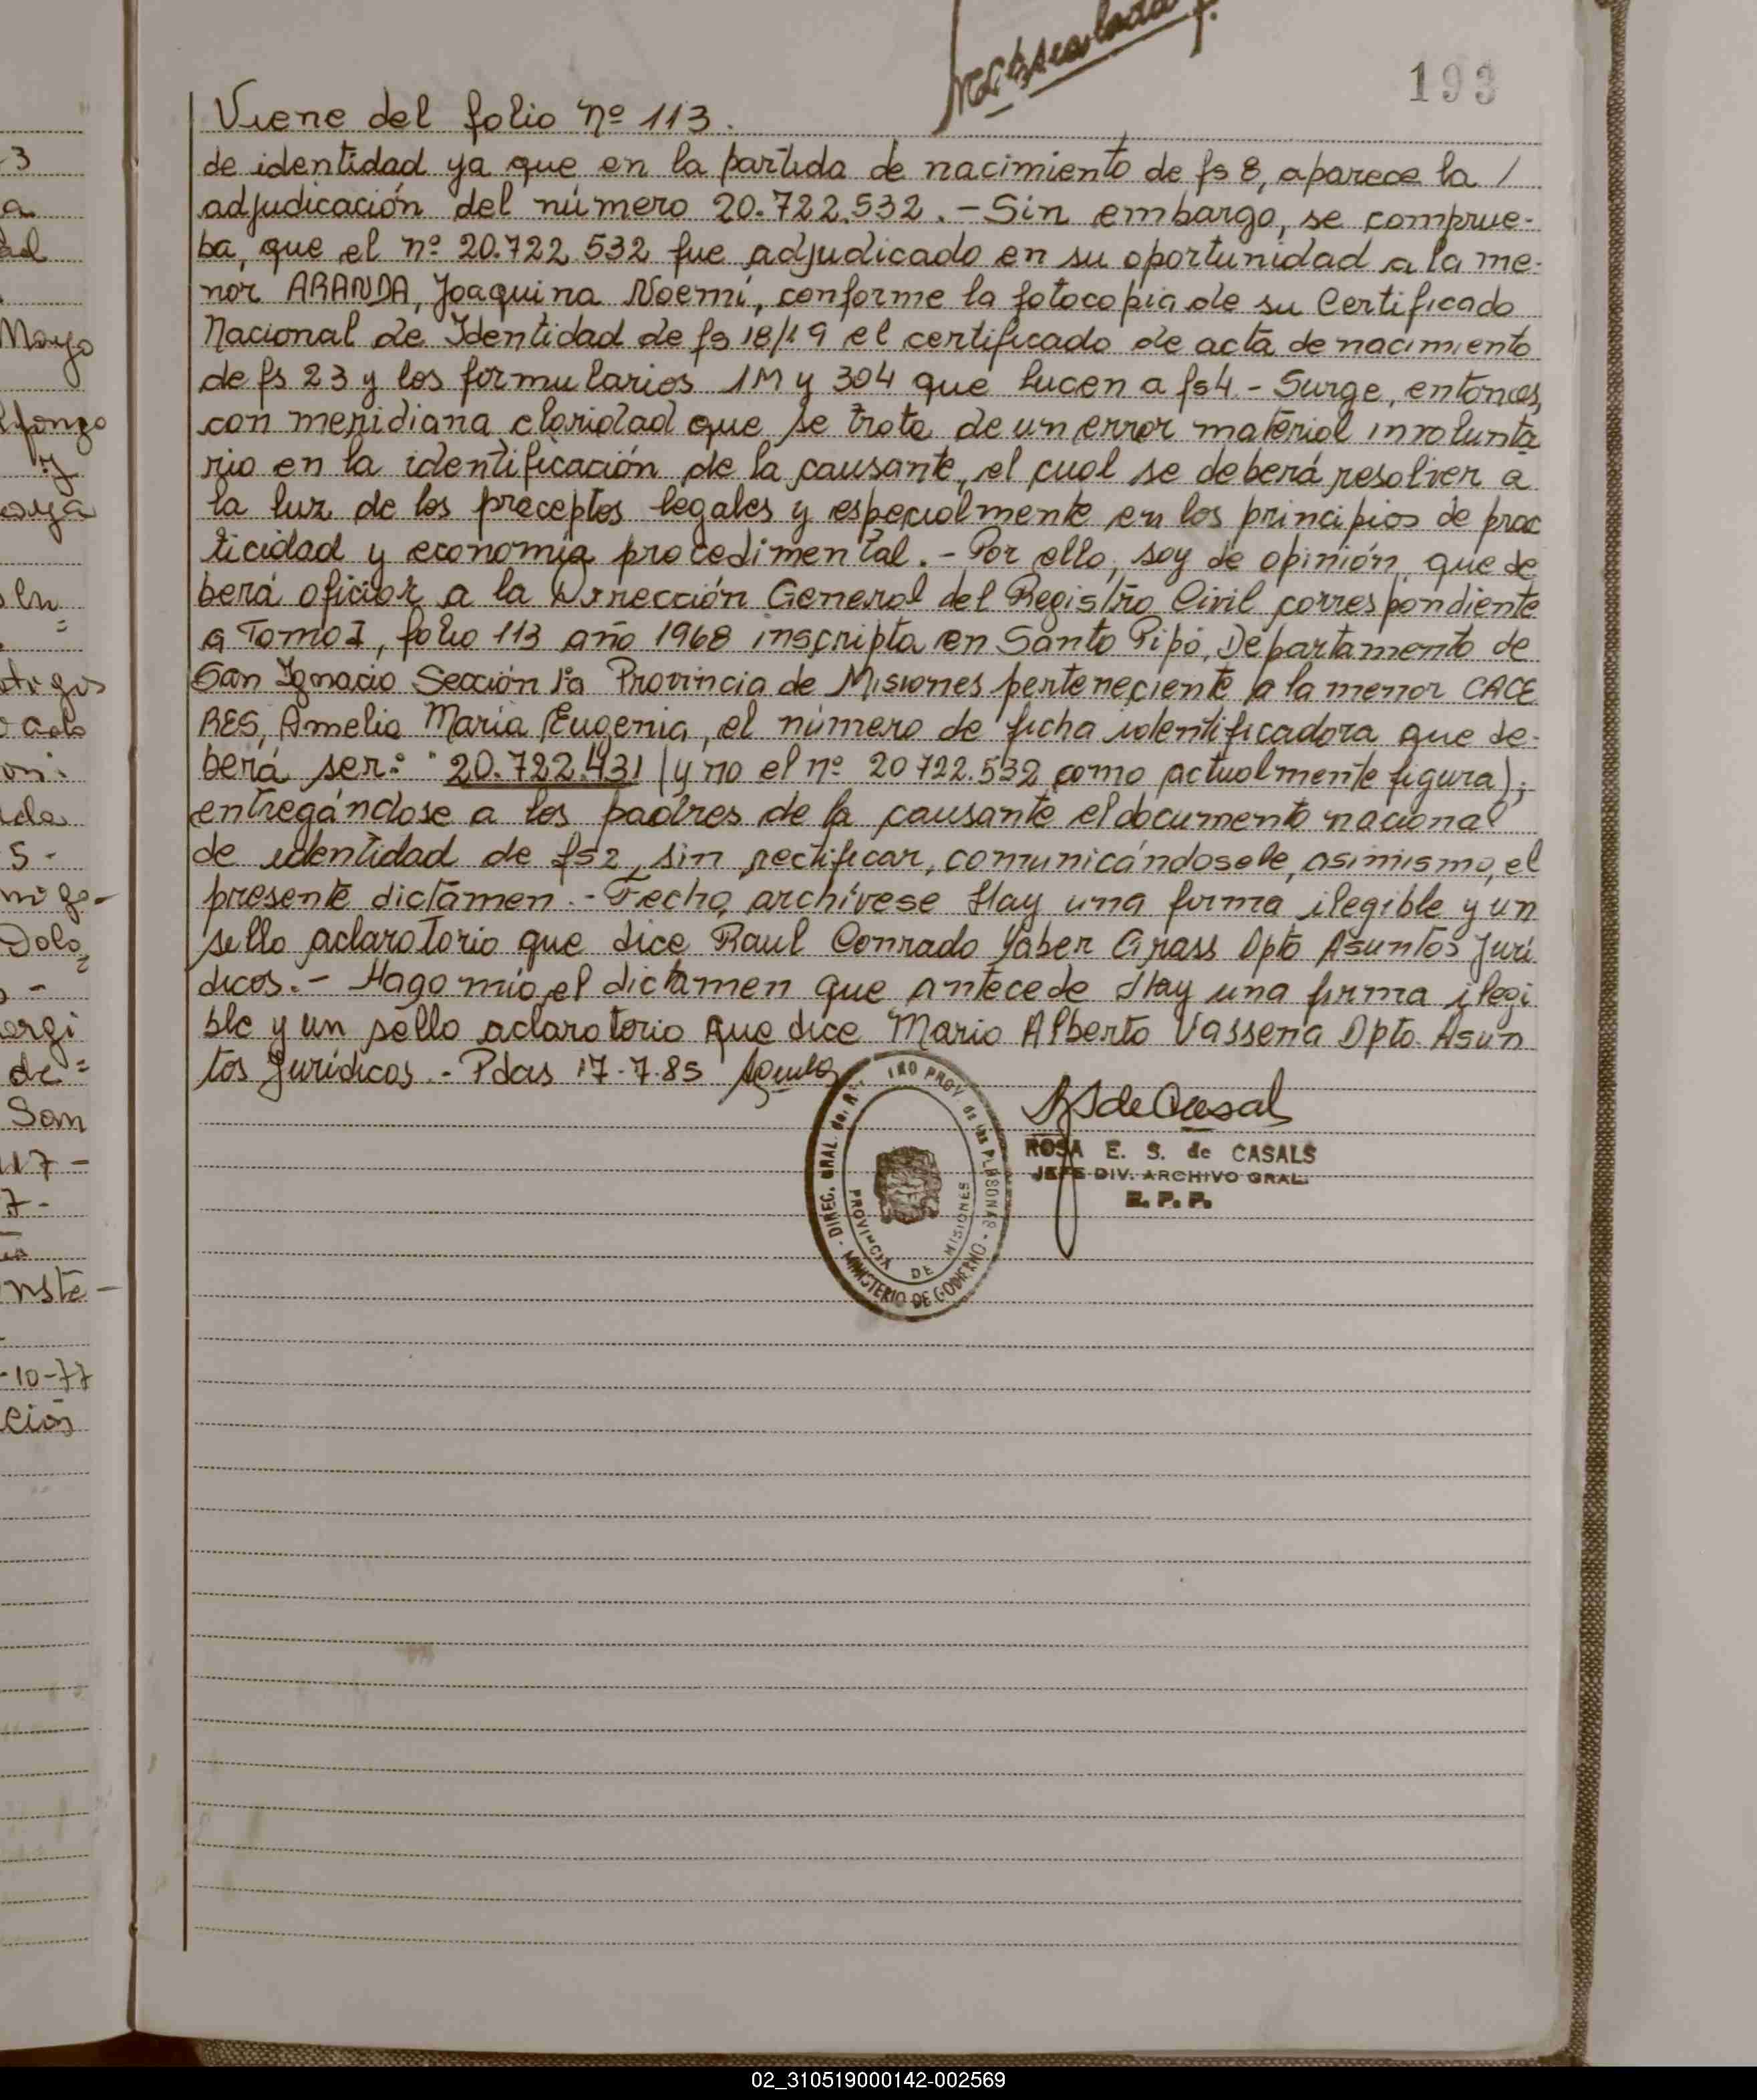 193
Viene del folio nº 113.
de identidad ya que en la partida de nacimiento de fs 8, aparece la /
adjudicación del número 20.722.532. - Sin embargo, se comprue-
ba, que el nº 20.722.532 fue adjudicado en su oportunidad a la me-
nor ARANDA, Joaquina Noemí, conforme la fotocopia de su Certificado
Nacional de Identidad de fs 18/19 el certificado de acta de nacimiento
de fs 23 y los formularios 1M y 304 que lucen a fs 4 - Surge, entonces,
con meridiana claridad que se trata de un error material involunta
rio en la identificación de la causante, el cual se deberá resolver a
la luz de los preceptos legales y especialmente en los principios de prac
ticidad y economía procedimental. - Por ello, soy de opinión, que de
berá oficiar a la Dirección General del Registro Civil correspondiente
a Tomo I, folio 113 año 1968 inscripta en Santo Pipó, Departamento de
San Ignacio Sección 1ª Provincia de Misiones perteneciente a la menor CACE
RES, Amelia María Eugenia, el número de ficha identificadora que de-
berá ser: "20.722.431 (y no el nº 20722.532 como actualmente figura);
entregándose a los padres de la causante el documento nacional
de identidad de fs 2, sin rectificar, comunicándosele, asimismo, el
presente dictámen. - Fecho, archívese Hay una firma ilegible y un
sello aclaratorio que dice Raul Conrado Yaber Grass Dpto Asuntos Jurí
dicos. - Hago mío el dictámen que antecede Hay una firma ilegi
ble y un sello aclaratorio que dice Mario Alberto Vassena Dpto. Asun
tos Jurídicos. - Pdas 17-7-85
ROSA E. S. de CASALS
JEFE DIV. ARCHIVO GRAL.
R. P. P.
PROVINCIA DE MISIONES
MINISTERIO DE GOBIERNO
02_310519000142-002569